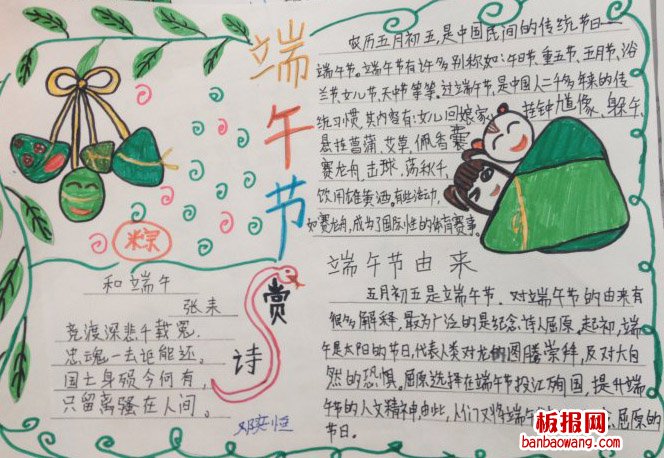 端午节
农历五月初五,是中国民间的传统节日——
端午节。端午节有许多别称如:午日节、重五节、五月节、浴
兰节、女儿节、天中节等等。过端午节,是中国人二千多年来的传
统习惯,其内容有:女儿回娘家,挂钟馗像、躲午、
悬挂菖蒲、艾草、佩香囊
赛龙舟,击球,荡秋千,
饮用雄黄酒,有些活动,
如赛龙舟,成为了国际性的体育赛事。
粽
和端午
张耒
竞渡深悲千载冤,
忠魂一去讵能还。
国土身殒今何有,
只留离骚在人间。
赏
诗
端午节由来
五月初五是端午节。对端午节的由来有
很多解释,最为广泛的是纪念诗人屈原。起初,端
午是太阳的节日,代表人类对龙的图腾崇拜,反对大自
然的恐惧。屈原选择在端午节投江殉国,提升端
午节的人文精神由此,人们又将端午 屈原的
节日。
板报网
banbaowang.com